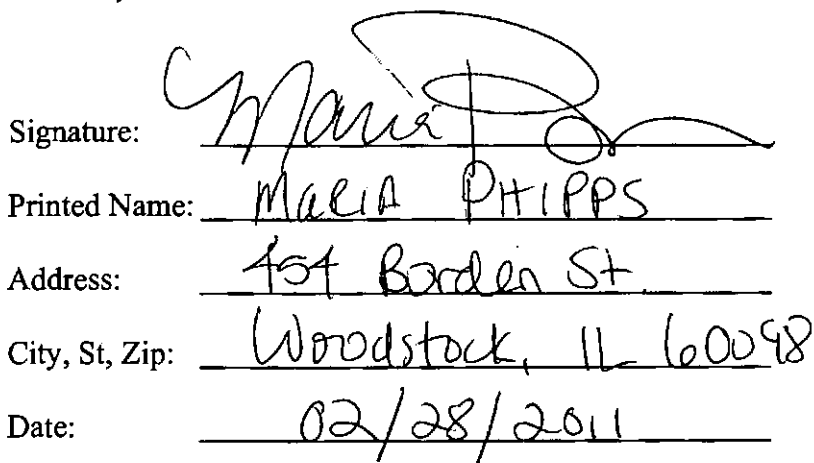 Signature: Maria P
Printed Name: MARIA PHIPPS
Address: 454 Borden St.
City, St, Zip: Woodstock, IL 60098
Date: 02/28/2011